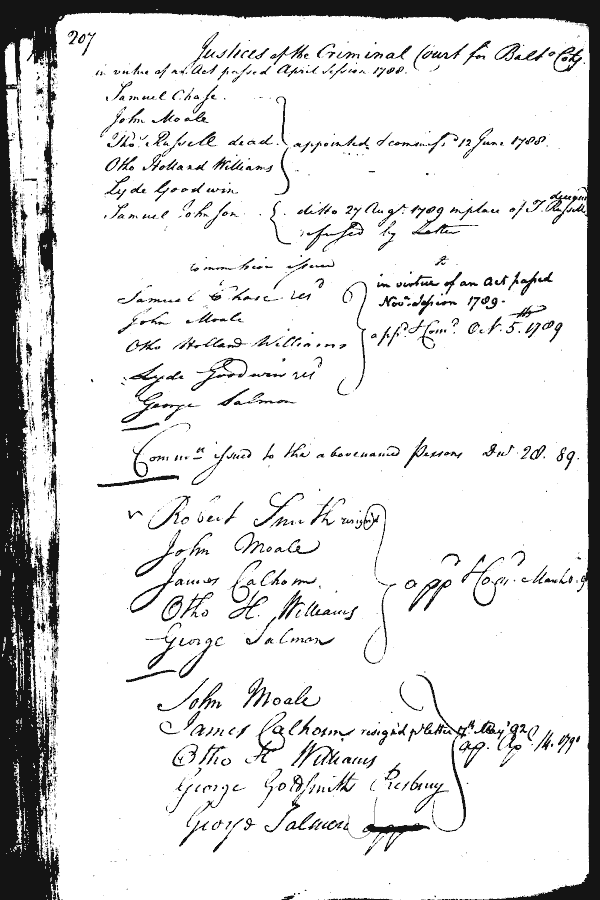 207
Justices of the Criminal Court for Balto Coty.
in virtue of an Act passed April Session 1788.
Samuel Chase.
John Moale
Thos. Russell dead. appointed & commissd 12 June 1788
Otho Holland Williams
Lyde Goodwin
Samuel Johnson ditto 27 Augt. 1789 in place of T. Russell deceased
refused by Letter
commission issued
Samuel Chase resd
in virtue of an Act passed
Novr. Session 1789.
John Moale
Otho Holland Williams appd. & Comd. 5th. 1789
Lyde Goodwin resd
George Salmon
Commn issued to the abovenamed Persons 28. 89.
Robert Smith resigd
John Moale
James Calhoun. appd & March
Otho H. Williams
George Salmon
John Moale
James Calhoun resign'd pr letter 17th May '92
ap. Ap. 14. 179
Otho H Williams
George Goldsmith Presbury
George Salmon